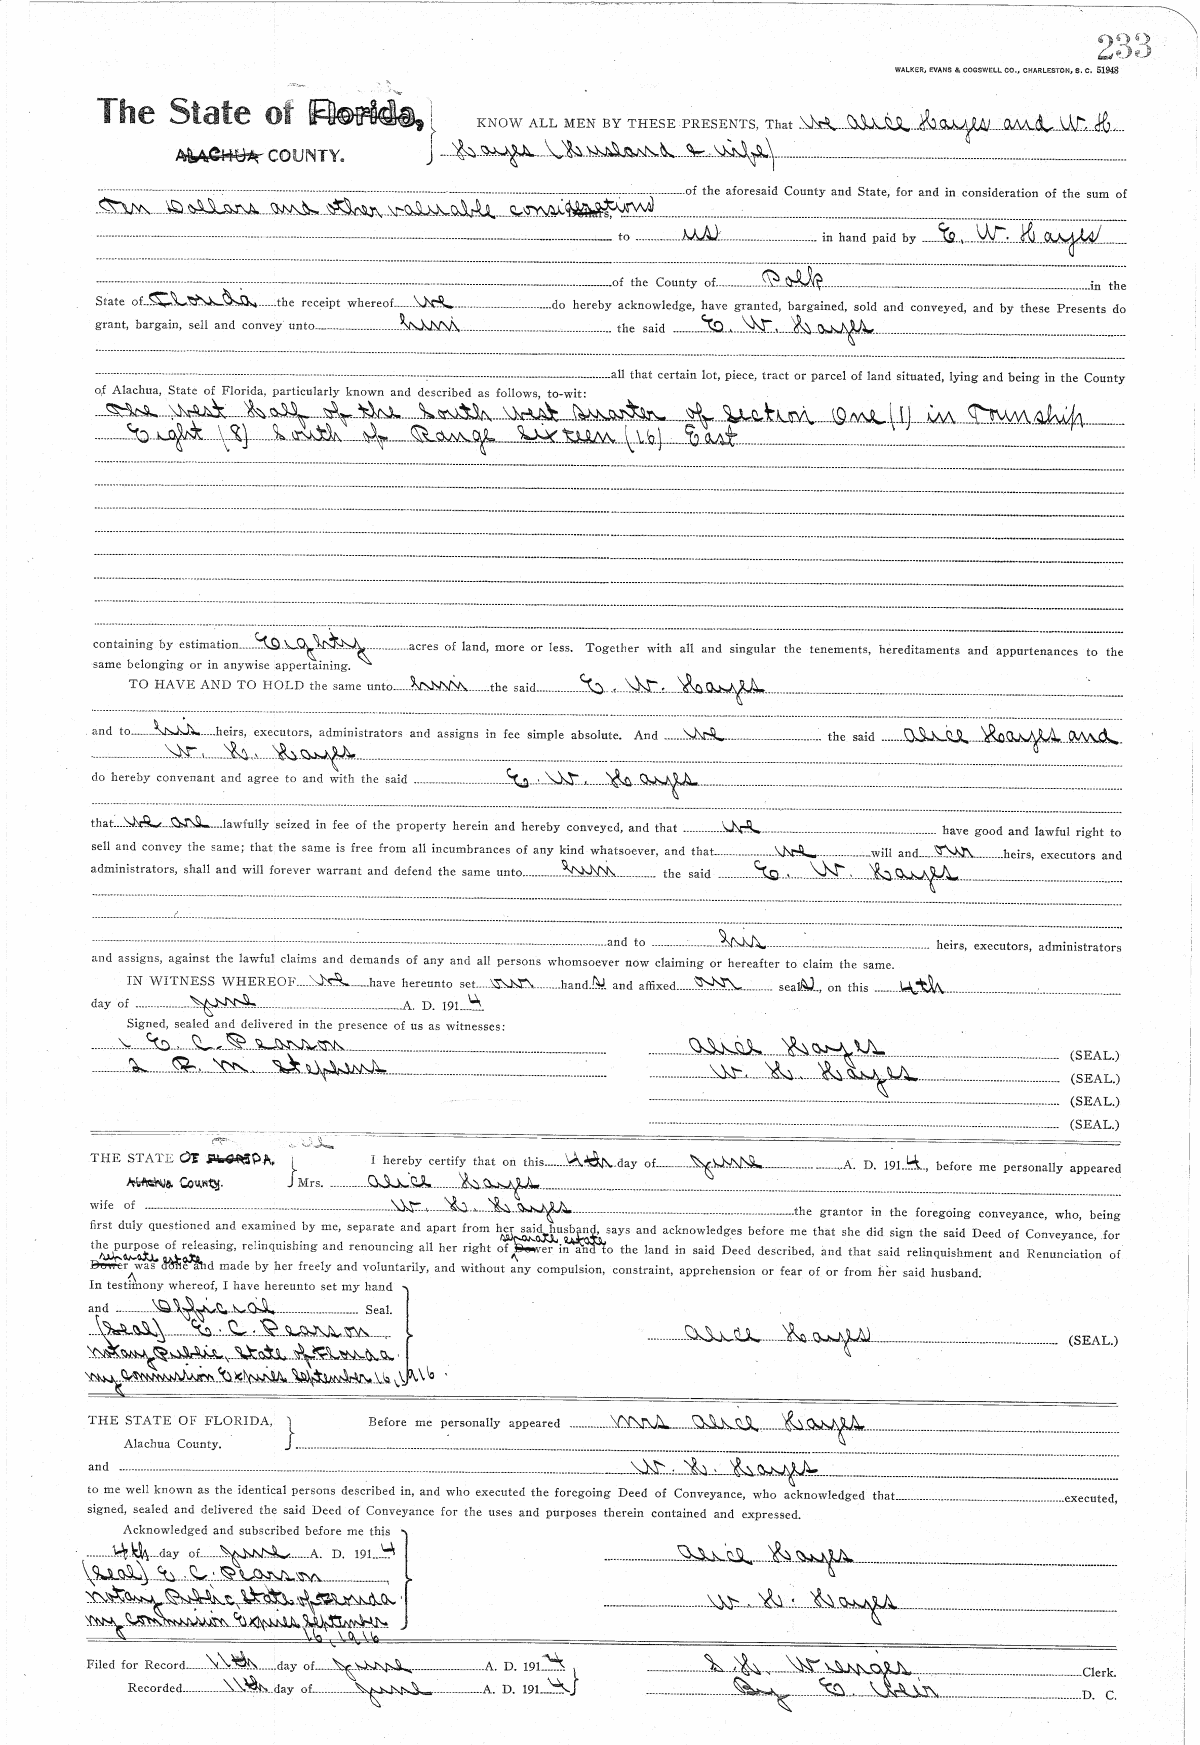 233
WALKER, EVANS & COGSWELL CO., CHARLESTON, S. C. 51948
The State of Florida,
ALACHUA COUNTY.
KNOW ALL MEN BY THESE PRESENTS, That We Alice Hayes and W. H.
Hayes (Husband & wife)
of the aforesaid County and State, for and in consideration of the sum of
Ten Dollars and other valuable considerations
to us in hand paid by E. W. Hayes
of the County of Polk in the
State of Florida the receipt whereof we do hereby acknowledge, have granted, bargained, sold and conveyed, and by these Presents do
grant, bargain, sell and convey unto him the said E. W. Hayes
all that certain lot, piece, tract or parcel of land situated, lying and being in the County
of Alachua, State of Florida, particularly known and described as follows, to-wit:
The West Half of the South West Quarter of Section One (1) in Township
Eight (8) South of Range Sixteen (16) East
containing by estimation Eighty acres of land, more or less. Together with all and singular the tenements, hereditaments and appurtenances to the
same belonging or in anywise appertaining.
TO HAVE AND TO HOLD the same unto him the said E. W. Hayes
and to his heirs, executors, administrators and assigns in fee simple absolute. And we the said Alice Hayes and
W. H. Hayes
do hereby convenant and agree to and with the said E. W. Hayes
that we are lawfully seized in fee of the property herein and hereby conveyed, and that we have good and lawful right to
sell and convey the same; that the same is free from all incumbrances of any kind whatsoever, and that we will and our heirs, executors and
administrators, shall and will forever warrant and defend the same unto him the said E. W. Hayes
and to his heirs, executors, administrators
and assigns, against the lawful claims and demands of any and all persons whomsoever now claiming or hereafter to claim the same.
IN WITNESS WHEREOF we have hereunto set our hands and affixed our seals, on this 4th
day of June A. D. 1914
Signed, sealed and delivered in the presence of us as witnesses:
1 E. C. Pearson Alice Hayes (SEAL.)
2 R. M. Stephens W. H. Hayes (SEAL.)
(SEAL.)
(SEAL.)
THE STATE OF FLORIDA. I hereby certify that on this 4th day of June A. D. 1914, before me personally appeared
Alachua County. Mrs. Alice Hayes
wife of W. H. Hayes the grantor in the foregoing conveyance, who, being
first duly questioned and examined by me, separate and apart from her said husband, says and acknowledges before me that she did sign the said Deed of Conveyance, for
separate estate
the purpose of releasing, relinquishing and renouncing all her right of Dower in and to the land in said Deed described, and that said relinquishment and Renunciation of
separate estate
Dower was done and made by her freely and voluntarily, and without any compulsion, constraint, apprehension or fear of or from her said husband.
In testimony whereof, I have hereunto set my hand
and Official Seal.
(Seal) E. C. Pearson Alice Hayes (SEAL.)
Notary Public, State of Florida
My Commission Expires September 16, 1916.
THE STATE OF FLORIDA, Before me personally appeared Mrs Alice Hayes
Alachua County.
and W. H. Hayes
to me well known as the identical persons described in, and who executed the foregoing Deed of Conveyance, who acknowledged that executed,
signed, sealed and delivered the said Deed of Conveyance for the uses and purposes therein contained and expressed.
Acknowledged and subscribed before me this
4th day of June A. D. 1914 Alice Hayes
(Seal) E C. Pearson
Notary Public, State of Florida W. H. Hayes
My Commission Expires September
16, 1916
Filed for Record 11th day of June A. D. 1914 S. H. Wienges Clerk.
Recorded 11th day of June A. D. 1914 By E. Weir D. C.